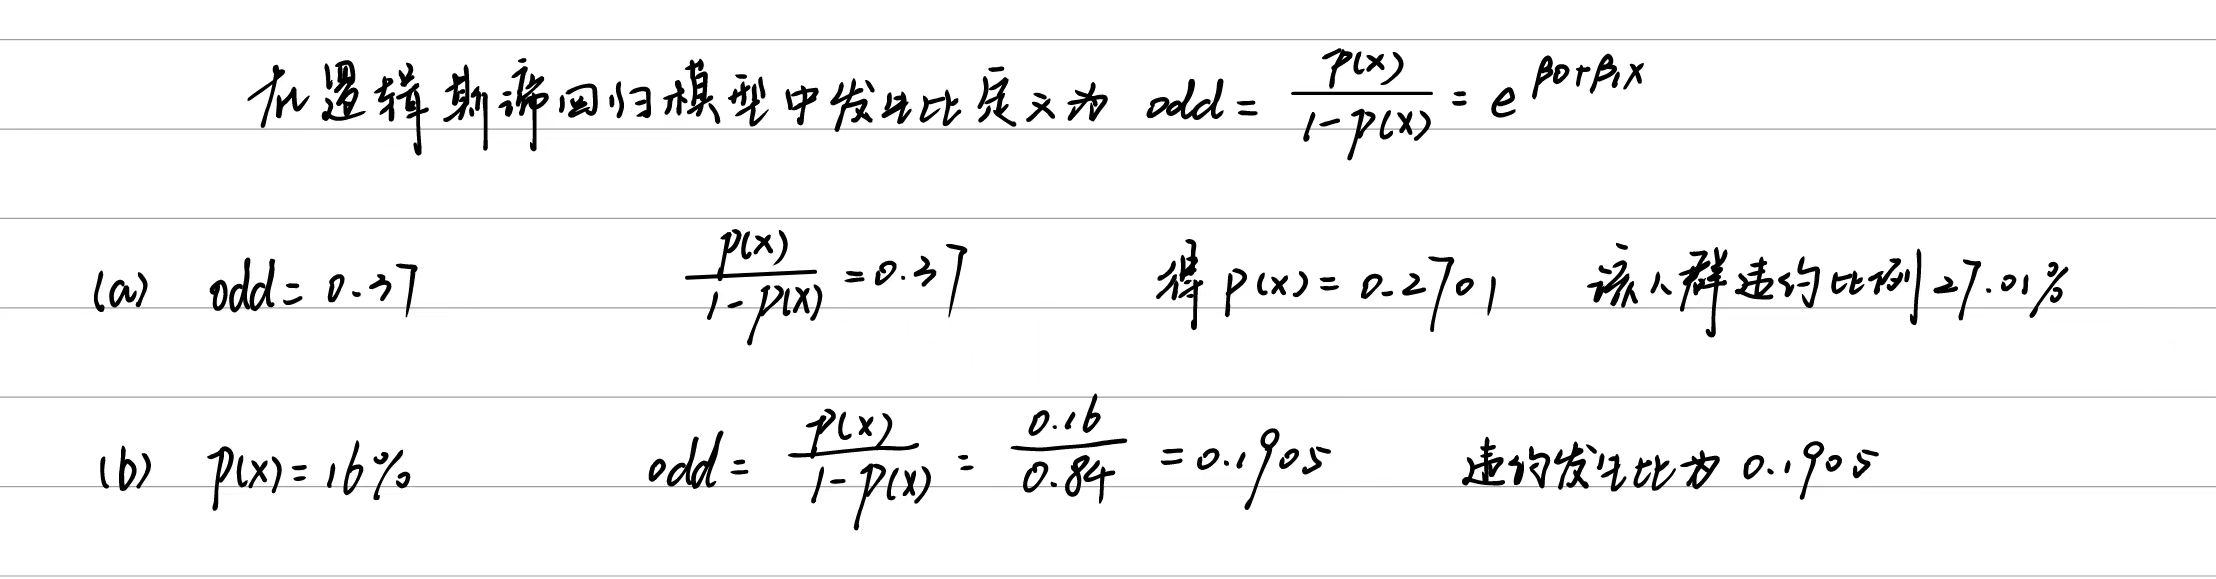 在逻辑斯谛回归模型中发生比定义为 odd = \frac{p(x)}{1-p(x)} = e^{β0+β_1x}
(a) odd = 0.37 \frac{p(x)}{1-p(x)} = 0.37 得 p(x) = 0.2701 该人群违约比例27.01%
(b) p(x) = 16% odd = \frac{p(x)}{1-p(x)} = \frac{0.16}{0.84} = 0.1905 违约发生比为 0.1905